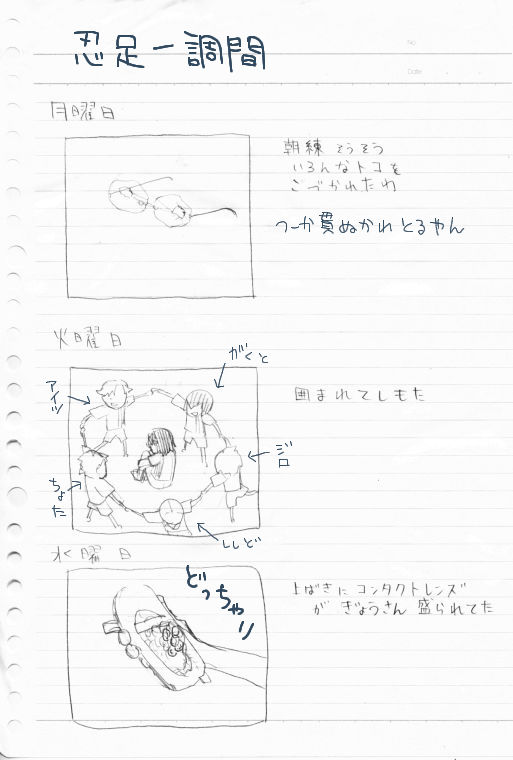 忍足一調間
No.
Date
月曜日
朝練 そうそう
いろんなトコを
こづかれたわ
つーか貫ぬかれとるやん
火曜日
がくと
アイツ
囲まれてしもた
ジロ
ちょた
ししど
水曜日
どっちゃり
上ばきに コンタクトレンズ
が ぎょうさん 盛られてた